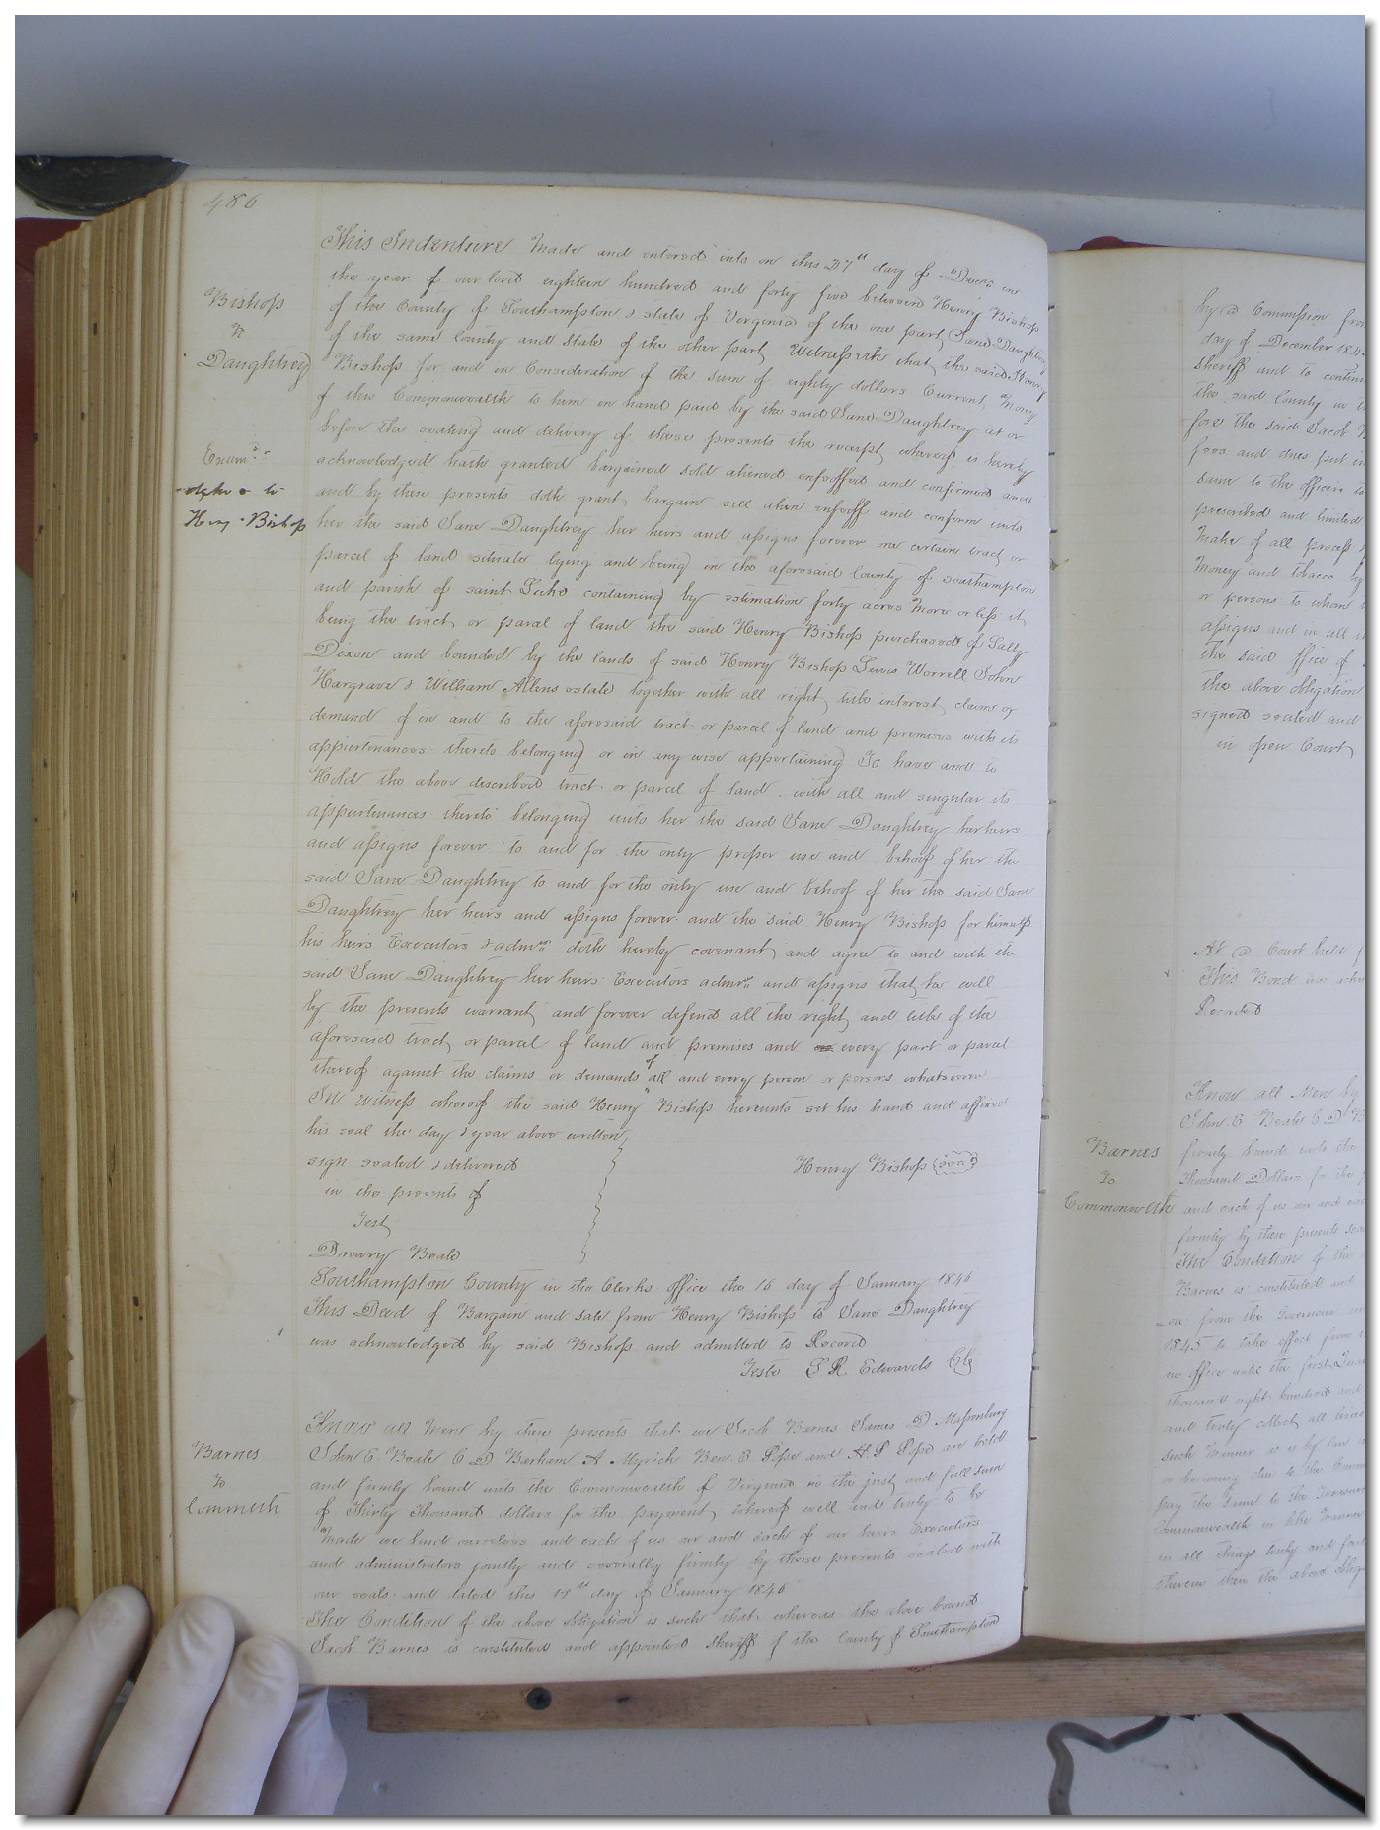 486
This Indenture Made and entered into on this 27th day of Decr in
the year of our lord eighteen hundred and forty five between Henry Bishop
of the County of Southampton & state of Verginia of the one part Jane Daughtrey
of the same County and State of the other part Witnesseth that the said Henry
Bishop for and in Consideration of the sum of eighty dollars Current Money
of this Commonwealth to him in hand paid by the said Jane Daughtrey at or
before the sealing and delivery of these presents the receipt whereof is hereby
acknowledged hath granted bargained sold aliened enfeoffed and confirmed and
and by these presents doth grant bargain sell alien enfeoff and confirm unto
her the said Jane Daughtrey her heirs and assigns forever one certain tract or
parcel of land situate lying and being in the aforesaid County of Southampton
and parish of saint Luke containing by estimation forty acres More or less it
being the tract or parcel of land the said Henry Bishop purchased of Sally
Dixon and bounded by the lands of said Henry Bishop Lewis Worrell John
Hargrave & William Allens estate together with all right title interest claim or
demand of in and to the aforesaid tract or parcel of land and premises with its
appurtenances thereto belonging or in any wise appertaining To have and to
Hold the above described tract or parcel of land with all and singular its
appurtenances thereto belonging unto her the said Jane Daughtrey her heirs
and assigns forever to and for the only proper use and behoof of her the
said Jane Daughtrey to and for the only use and behoof of her the said Jane
Daughtrey her heirs and assigns forever and the said Henry Bishop for himself
his heirs Executors & admrs doth hereby covenant and agree to and with the
said Jane Daughtrey her heirs Executors admrs and assigns that he will
by the presents warrant and forever defend all the right and title of the
aforesaid tract or parcel of land and premises and every part or parcel
thereof against the claims or demands of all and every person or persons whatsoever
In Witness whereof the said Henry Bishop hereunto set his hand and affixed
his seal the day & year above written
sign sealed & delivered
in the presents of
Test
Drewry Beale
Henry Bishop (seal)
Southampton County in the Clerks office the 16 day of January 1846
This Deed of Bargain and sale from Henry Bishop to Jane Daughtrey
was acknowledged by said Bishop and admitted to Record
Teste L R Edwards Clk
Know all Men by these presents that we Jacob Barnes James D Massenburg
John E Beale C D Barham A Myrick Ben. E Pope and H. P Pope are held
and firmly bound unto the Commonwealth of Virginia in the just and full sum
of Thirty Thousand dollars for the payment whereof well and truly to be
Made we bind ourselves and each of us our and each of our heirs Executors
and administrators jointly and severally firmly by these presents sealed with
our seals and dated this 19th day of January 1846
The Condition of the above Obligation is such that whereas the above bound
Jacob Barnes is constituted and appointed Sheriff of the County of Southampton
Bishop
Daughtrey
Examd
Hery Bishop
Barnes
To
Commlth
by a Commission from
day of December 184
Sheriff and to contin
the said County in
fore the said Jacob
fees and dues put in
same to the officers to
prescribed and limited
Make of all process
Money and tobacco by
or persons to whom
assigns and in all
the said office of
the above obligation
signed sealed and
in open Court
At a Court held
This Bond was ackn
Recorded
Barnes
To
Commonwealth
Know all Men by
John E Beale C D B
firmly bound unto the
Thousand Dollars for the p
and each of us our and eac
firmly by these presents sea
The Condition of the
Barnes is constituted and
on from the Governor
1845 to take effect from
in office until the first
thousand eight hundred and
and truly collect all
such Manner as is by law
or becoming due to the Comm
pay the same to the Treasurer
Commonwealth in like Manner
in all things truly and fait
therein then the above Oblig